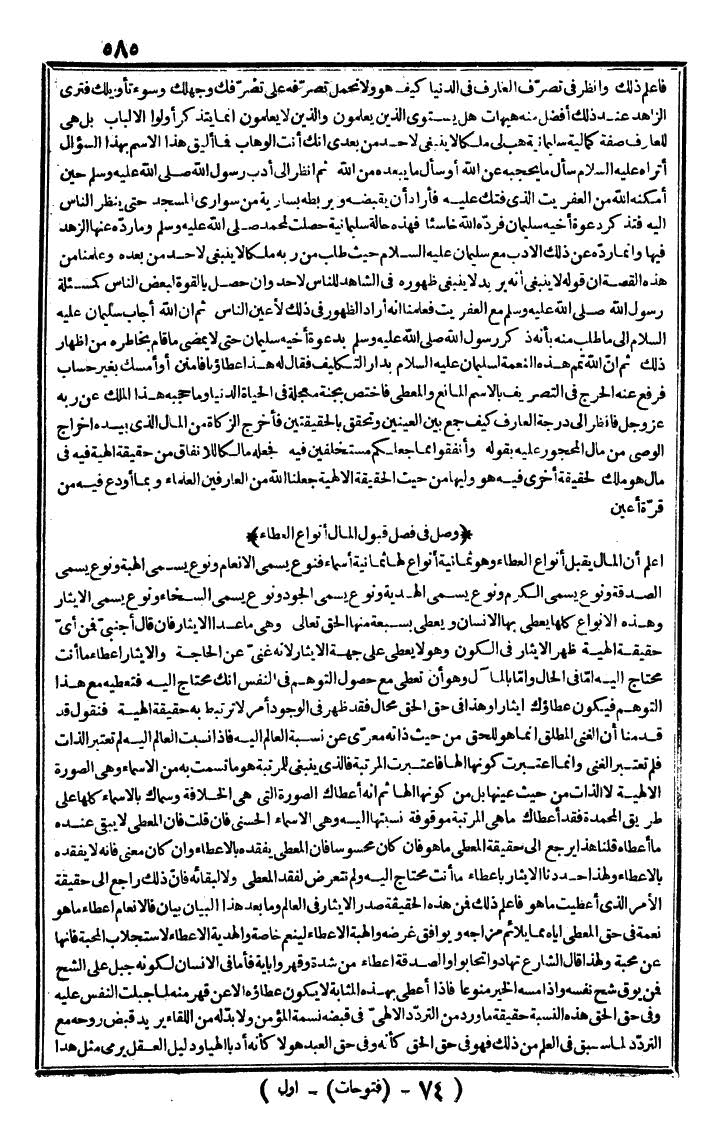 ٥٨٥
فاعلم ذلك وانظر فى تصرّف العارف فى الدنيا كيف هو ولا تحمل تصرّفه على تصرّفك وجهلك وسوء تأويلك فترى
الزاهد عند ذلك أفضل منه هيهات هل يستوى الذين يعلمون والذين لا يعلمون انما يتذكر أولوا الالباب بل هى
للعارف صفة كمالية سليمانية هب لى ملكا لا ينبغى لاحد من بعدى انك أنت الوهاب فما أليق هذا الاسم بهذا السؤال
أتراه عليه السلام سأل ما يحجبه عن الله أو سأل ما يبعده من الله ثم انظر الى أدب رسول الله صلى الله عليه وسلم حين
أمكنه الله من العفريت الذى فتك عليه فأراد أن يقبضه ويربطه بسارية من سوارى المسجد حتى ينظر الناس
اليه فتذكر دعوة أخيه سليمان فردّه الله خاسئا فهذه حالة سليمانية حصلت لمحمد صلى الله عليه وسلم وما ردّه عنها الزهد
فيها وانما ردّه عن ذلك الادب مع سليمان عليه السلام حيث طلب من ربه ملكا لا ينبغى لاحد من بعده وعلمنا من
هذه القصة ان قوله لا ينبغى أنه يريد لا ينبغى ظهوره فى الشاهد للناس لاحد وان حصل بالقوة لبعض الناس كمسئلة
رسول الله صلى الله عليه وسلم مع العفريت فعلمنا انه أراد الظهور فى ذلك لأعين الناس ثم ان الله أجاب سليمان عليه
السلام الى ما طلب منه بأنه ذكر رسول الله صلى الله عليه وسلم بدعوة أخيه سليمان حتى لا يمضى ما قام بخاطره من اظهار
ذلك ثم انّ الله تمم هذه النعمة لسليمان عليه السلام بدار التكليف فقال له هذا عطاؤنا فامنن أو أمسك بغير حساب
فرفع عنه الحرج فى التصريف بالاسم المانع والمعطى فاختص بجنة معجلة فى الحياة الدنيا وما حجبه هذا الملك عن ربه
عز وجل فانظر الى درجة العارف كيف جمع بين العينين وتحقق بالحقيقتين فأخرج الزكاة من المال الذى بيده اخراج
الوصى من مال المحجور عليه بقوله وأنفقوا مما جعلكم مستخلفين فيه فجعله مالكا للانفاق من حقيقة الهية فيه فى
مال هو ملك لحقيقة أخرى فيه هو وليها من حيث الحقيقة الالهية جعلنا الله من العارفين العلماء وبما أودع فيه من
قرّة أعين
﴿وصل فى فصل قبول المال أنواع العطاء﴾
اعلم أن المال يقبل أنواع العطاء وهو ثمانية أنواع لها ثمانية أسماء فنوع يسمى الانعام ونوع يسمى الهبة ونوع يسمى
الصدقة ونوع يسمى الكرم ونوع يسمى الهدية ونوع يسمى الجود ونوع يسمى السخاء ونوع يسمى الايثار
وهذه الانواع كلها يعطى بها الانسان ويعطى بسبعة منها الحق تعالى وهى ما عدا الايثار فان قال أجنبىّ فمن أىّ
حقيقة الهية ظهر الايثار فى الكون وهو لا يعطى على جهة الايثار لانه غنىّ عن الحاجة والايثار اعطاء ما أنت
محتاج اليه امّا فى الحال وامّا بالمآل وهو أن تعطى مع حصول التوهم فى النفس انك محتاج اليه فتعطيه مع هذا
التوهم فيكون عطاؤك ايثارا وهذا فى حق الحق محال فقد ظهر فى الوجود أمر لا ترتبط به حقيقة الهية فنقول قد
قدمنا أن الغنى المطلق انما هو للحق من حيث ذاته معرّى عن نسبة العالم اليه فاذا نسبت العالم اليه لم تعتبر الذات
فلم تعتبر الغنى وانما اعتبرت كونها الها فاعتبرت المرتبة فالذى ينبغى للمرتبة هو ما تسمت به من الاسماء وهى الصورة
الالهية لا الذات من حيث عينها بل من كونها الها ثم انه أعطاك الصورة التى هى الخلافة وسماك بالاسماء كلها على
طريق المحمدة فقد أعطاك ما هى المرتبة موقوفة نسبتها اليه وهى الاسماء الحسنى فان قلت فان المعطى لا يبقى عنده
ما أعطاه قلنا هذا يرجع الى حقيقة المعطى ما هو فان كان محسوسا فان المعطى يفقده بالاعطاء وان كان معنى فانه لا يفقده
بالاعطاء ولهذا حددنا الايثار باعطاء ما أنت محتاج اليه ولم نتعرض لفقد المعطى ولا لبقائه فانّ ذلك راجع الى حقيقة
الأمر الذى أعطيت ما هو فاعلم ذلك فمن هذه الحقيقة صدر الايثار فى العالم وما بعد هذا البيان بيان فالانعام اعطاء ما هو
نعمة فى حق المعطى اياه مما يلائم مزاجه ويوافق غرضه والهبة الاعطاء لينعم خاصة والهدية الاعطاء لاستجلاب المحبة فانها
عن محبة ولهذا قال الشارع تهادوا تحابوا والصدقة اعطاء من شدة وقهر واباية فأما فى الانسان لكونه جبل على الشح
فمن يوق شح نفسه واذا مسه الخير منوعا فاذا أعطى بهذه المثابة لا يكون عطاؤه الا عن قهر منه لما جبلت النفس عليه
وفى حق الحق هذه النسبة حقيقة ما ورد من التردّد الالهىّ فى قبضه نسمة المؤمن ولا بدّ له من اللقاء يريد قبض روحه مع
التردّد لما سبق فى العلم من ذلك فهو فى حق الحق كأنه وفى حق العبد هو لا كأنه أدبا الهيا ودليل العقل يرمى مثل هذا
( ٧٤ - (فتوحات) - اول )